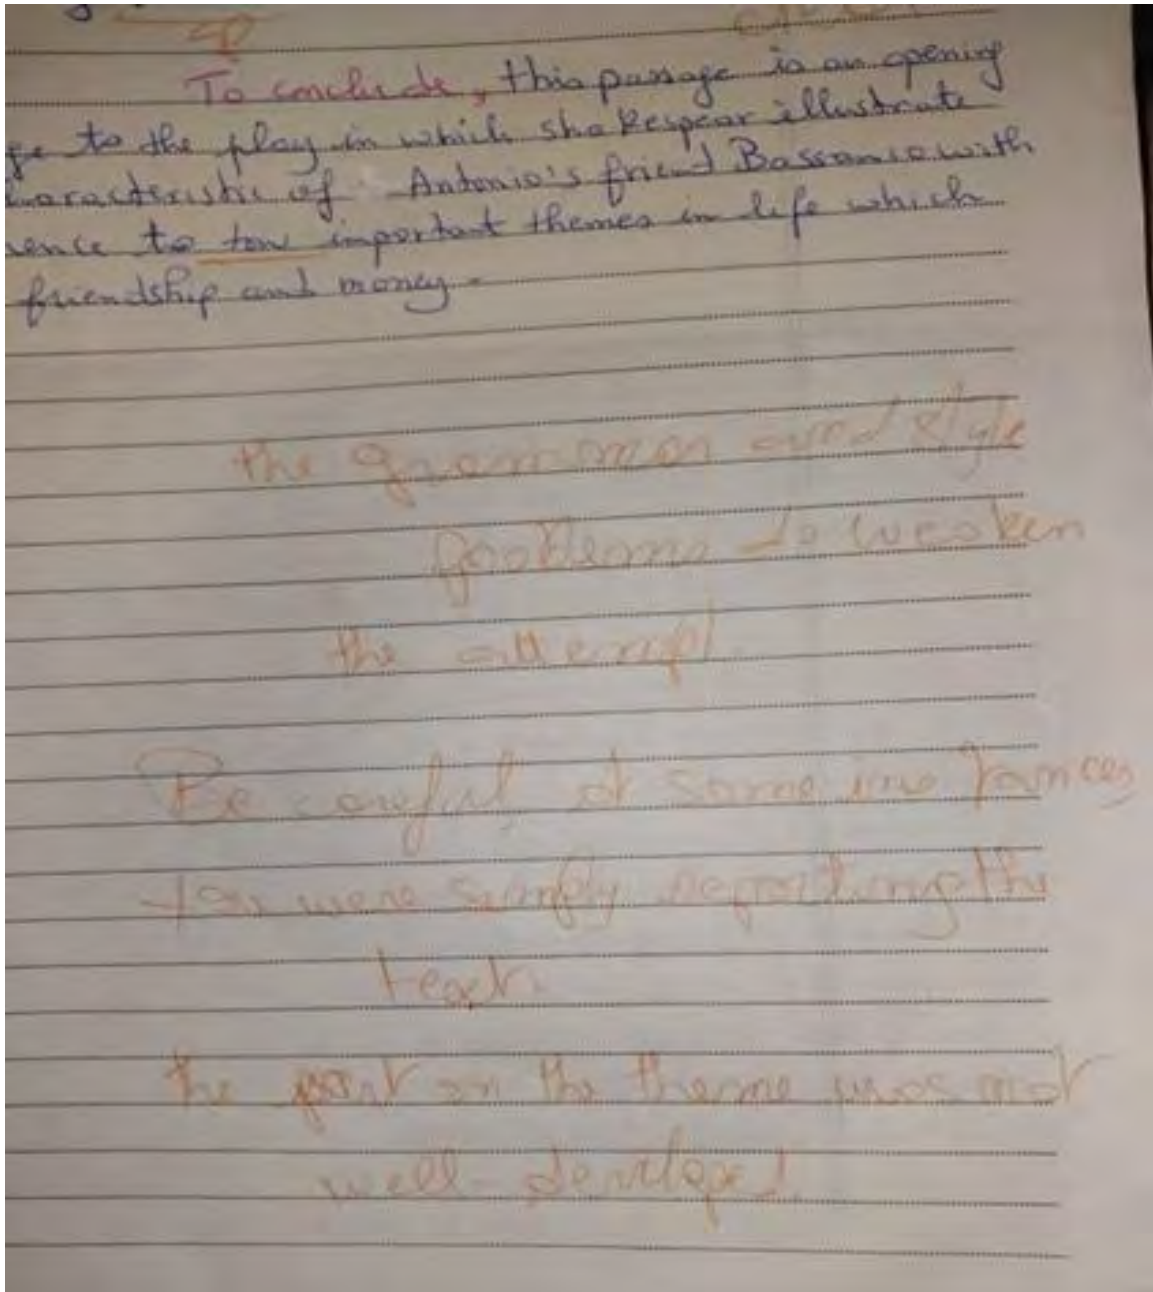 To conclude, this passage is an opening
ge to the play in which shakespear illustrate
characteristic of Antonio's friend Bassanio with
rence to tow important themes in life which
friendship and money.
the grammar and style
problems do weaken
the attempt.
Be careful, at some instances
you were simply reporting the
text.
the part on the theme was not
well-developed.